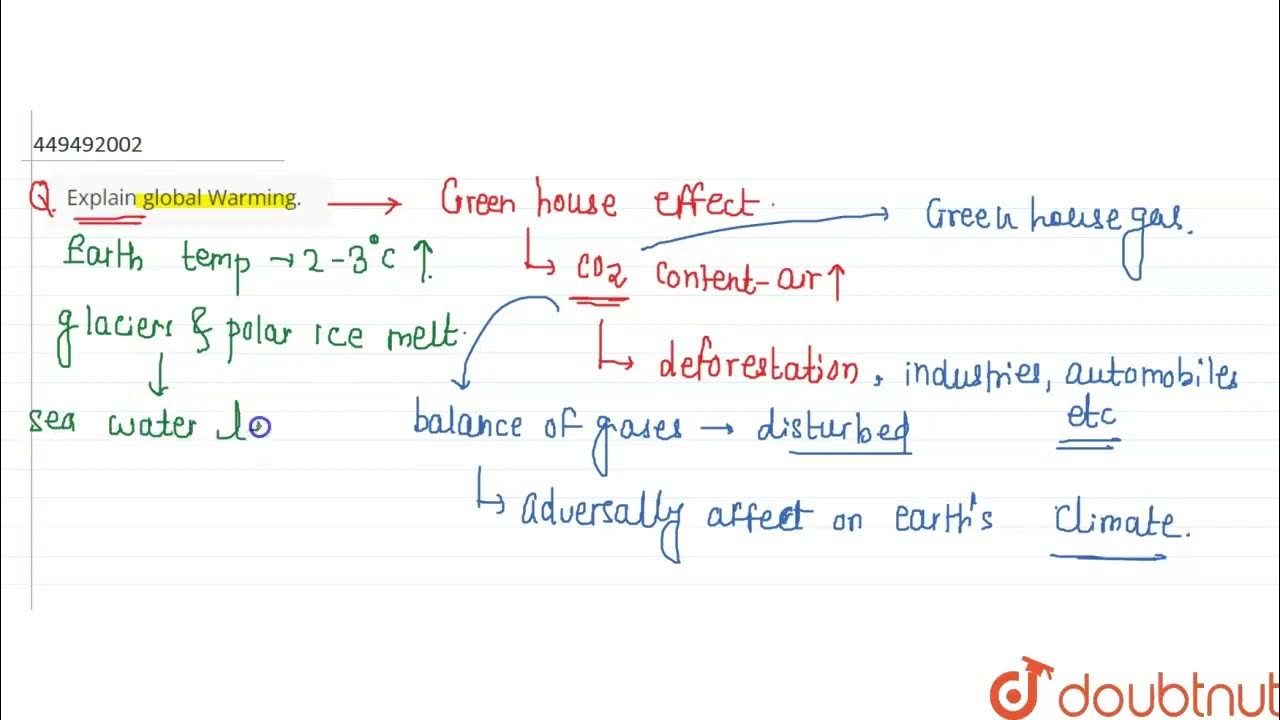 449492002
Q. Explain global Warming. → Green house effect.
→ Green house gas.
Earth temp → 2-3°C ↑
↳ CO2 content-air ↑
glaciers & polar ice melt.
↳ deforestation, industries, automobiles
etc
sea water le
balance of gases → disturbed
↳ adversally affect on earth's climate.
doubtnut